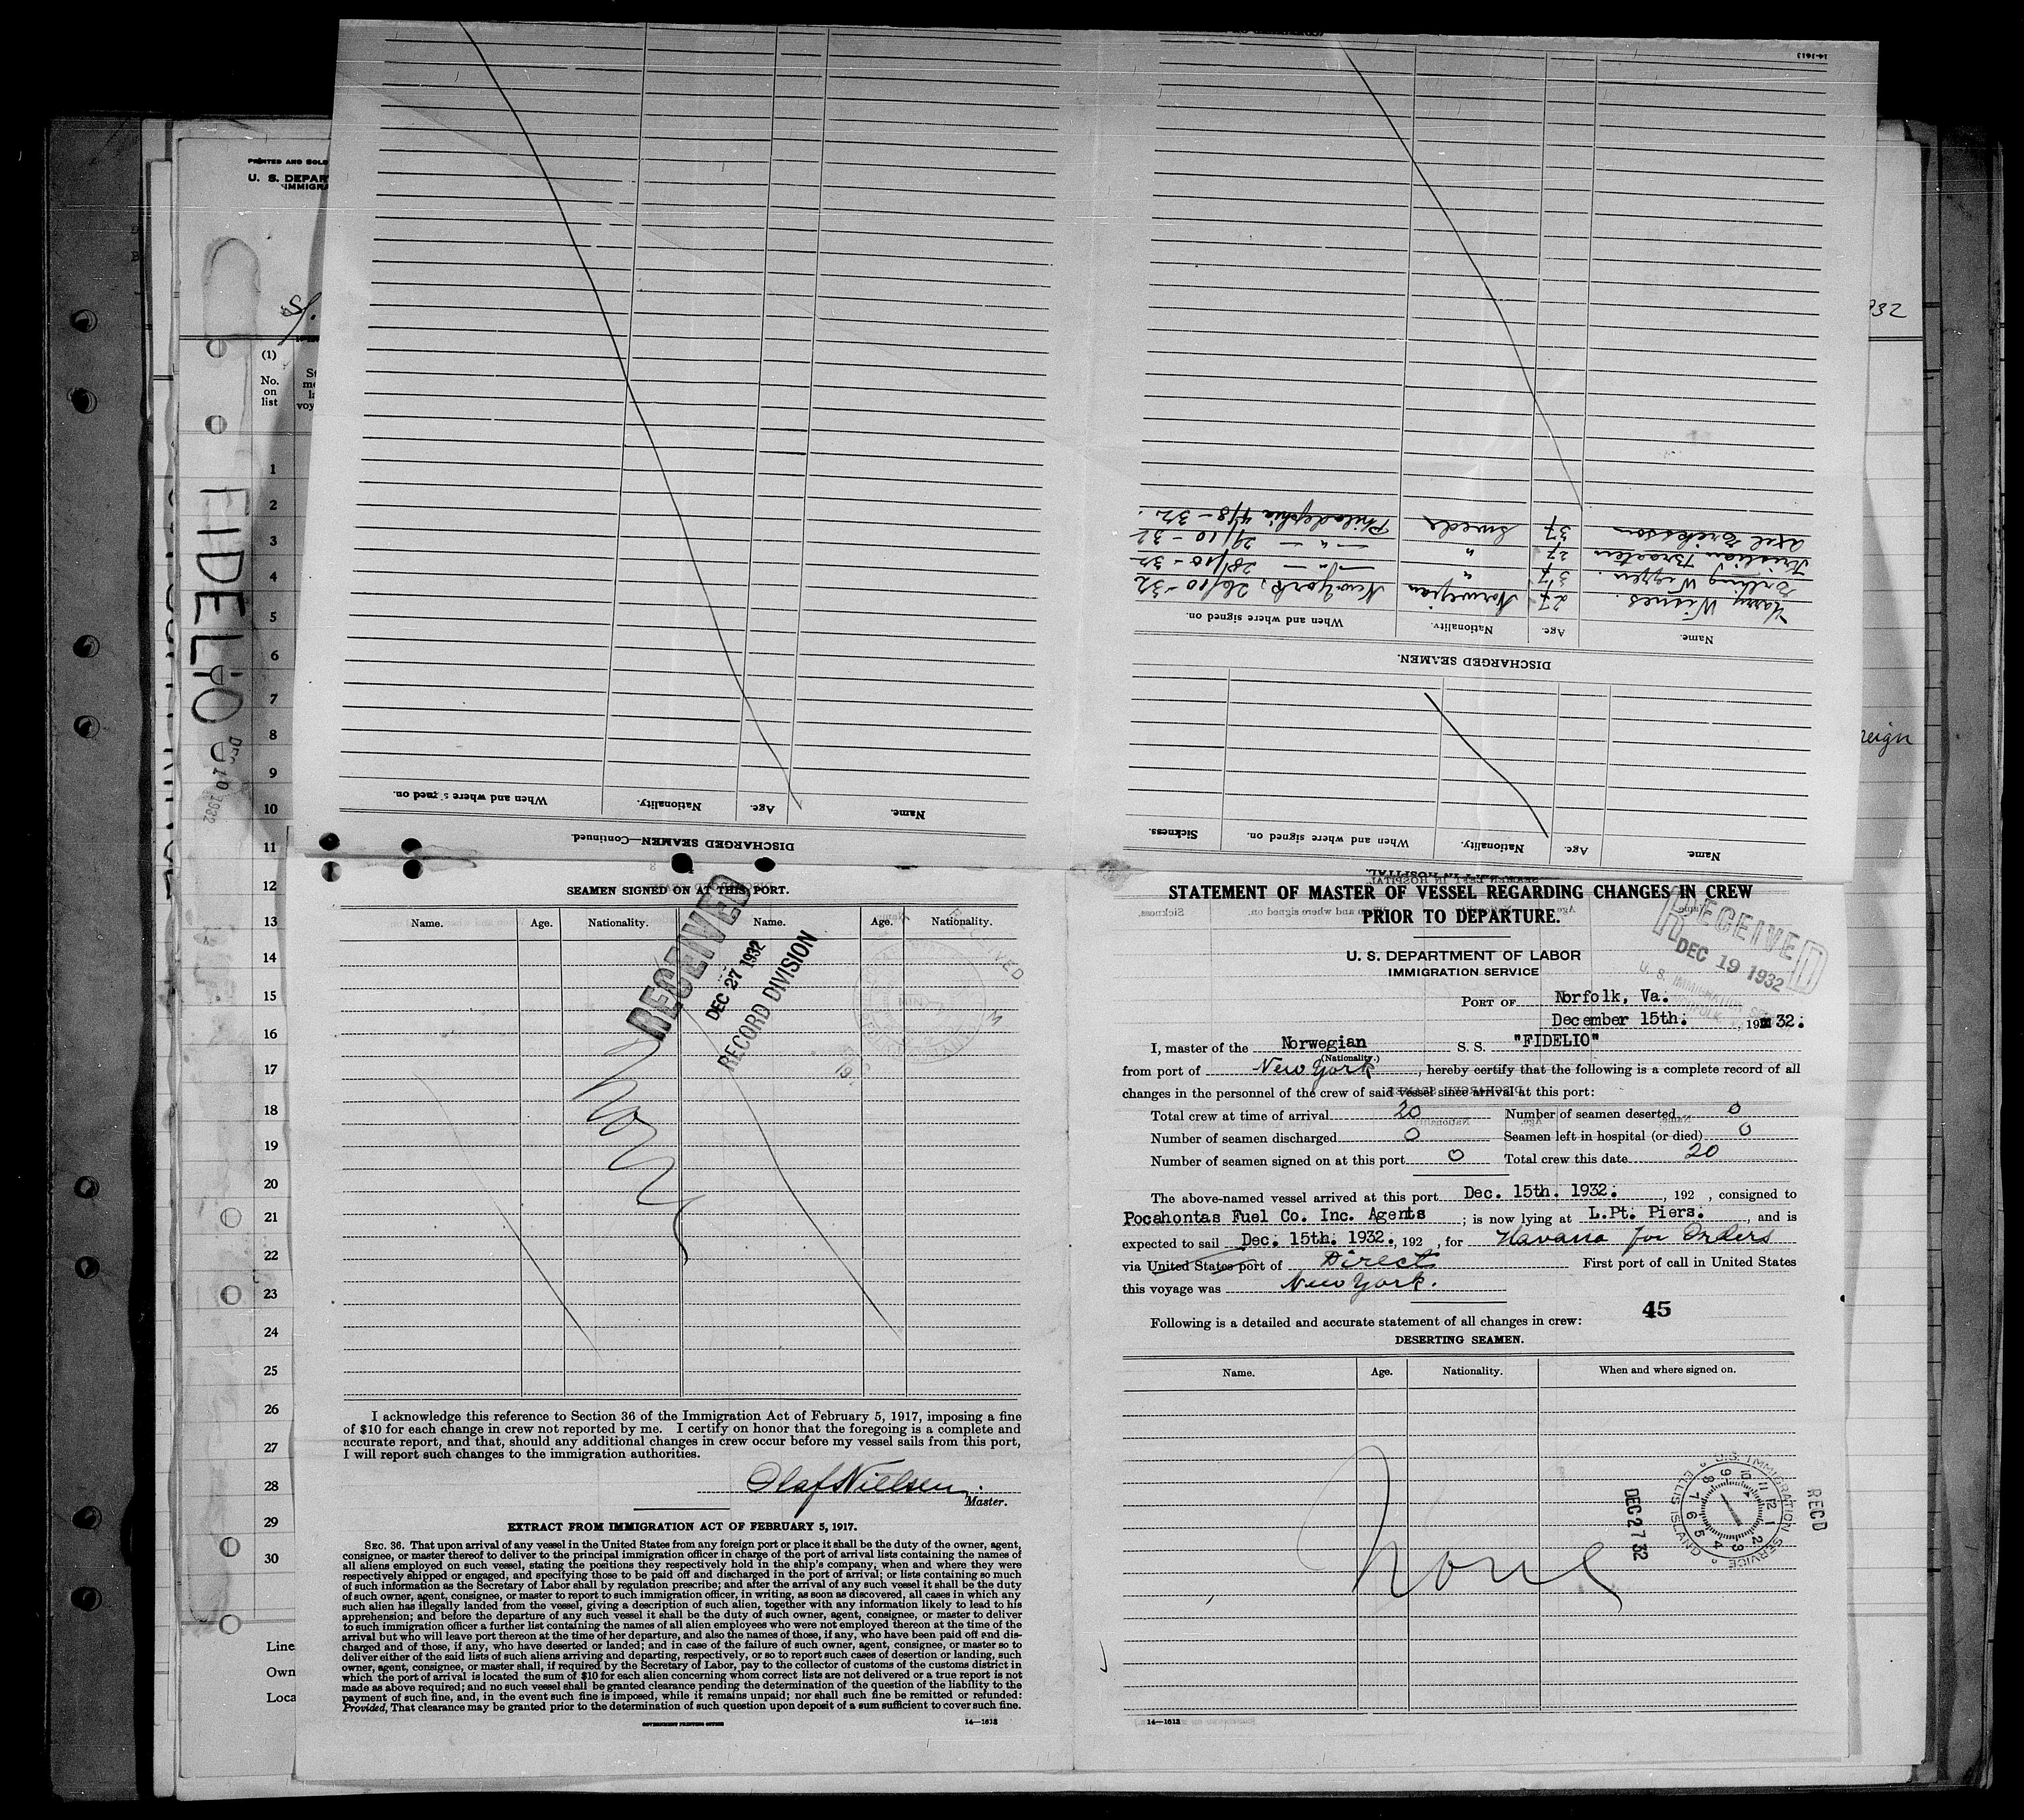 PRINTED AND SOLD
U. S. DEPAR
IMMIGRA
(1)
No.
on
list
1
2
3
4
5
6
7
8
9
10
11
12
13
14
15
16
17
18
19
20
21
22
23
24
25
26
27
28
29
30
Line
Own
Loca
FIDELIO
DEC 10 1932
932
reign
14-1613
DISCHARGED SEAMEN—Continued.
Name. Age. Nationality. When and where signed on.
SEAMEN LEFT IN HOSPITAL
Name. Age. Nationality. When and where signed on. Sickness.
DISCHARGED SEAMEN.
Name. Age. Nationality. When and where signed on.
Harry Wisnes. 27 Norwegian New York, 26/10-32
Erling Wiggen. 37 " —"— 28/10-32
Kristian Braaten 27 " —"— 29/10-32
Axel Eriksson 37 Swede Philadelphia 4/8-32.
SEAMEN SIGNED ON AT THIS PORT.
Name. Age. Nationality. Name. Age. Nationality.
RECEIVED
DEC 27 1932
RECORD DIVISION
None
I acknowledge this reference to Section 36 of the Immigration Act of February 5, 1917, imposing a fine
of $10 for each change in crew not reported by me. I certify on honor that the foregoing is a complete and
accurate report, and that, should any additional changes in crew occur before my vessel sails from this port,
I will report such changes to the immigration authorities.
Olaf Nielsen.
Master.
EXTRACT FROM IMMIGRATION ACT OF FEBRUARY 5, 1917.
SEC. 36. That upon arrival of any vessel in the United States from any foreign port or place it shall be the duty of the owner, agent,
consignee, or master thereof to deliver to the principal immigration officer in charge of the port of arrival lists containing the names of
all aliens employed on such vessel, stating the positions they respectively hold in the ship's company, when and where they were
respectively shipped or engaged, and specifying those to be paid off and discharged in the port of arrival; or lists containing so much
of such information as the Secretary of Labor shall by regulation prescribe; and after the arrival of any such vessel it shall be the duty
of such owner, agent, consignee, or master to report to such immigration officer, in writing, as soon as discovered, all cases in which any
such alien has illegally landed from the vessel, giving a description of such alien, together with any information likely to lead to his
apprehension; and before the departure of any such vessel it shall be the duty of such owner, agent, consignee, or master to deliver
to such immigration officer a further list containing the names of all alien employees who were not employed thereon at the time of the
arrival but who will leave port thereon at the time of her departure, and also the names of those, if any, who have been paid off and dis-
charged and of those, if any, who have deserted or landed; and in case of the failure of such owner, agent, consignee, or master so to
deliver either of the said lists of such aliens arriving and departing, respectively, or so to report such cases of desertion or landing, such
owner, agent, consignee, or master shall, if required by the Secretary of Labor, pay to the collector of customs of the customs district in
which the port of arrival is located the sum of $10 for each alien concerning whom correct lists are not delivered or a true report is not
made as above required; and no such vessel shall be granted clearance pending the determination of the question of the liability to the
payment of such fine, and, in the event such fine is imposed, while it remains unpaid; nor shall such fine be remitted or refunded:
Provided, That clearance may be granted prior to the determination of such question upon deposit of a sum sufficient to cover such fine.
GOVERNMENT PRINTING OFFICE
14—1613
STATEMENT OF MASTER OF VESSEL REGARDING CHANGES IN CREW
PRIOR TO DEPARTURE.
U. S. DEPARTMENT OF LABOR
IMMIGRATION SERVICE
RECEIVED
DEC 19 1932
U. S. IMMIGRATION SERVICE
NORFOLK
PORT OF Norfolk, Va.
December 15th. , 19232.
I, master of the Norwegian S. S. "FIDELIO"
(Nationality.)
from port of New York , hereby certify that the following is a complete record of all
changes in the personnel of the crew of said vessel since arrival at this port:
Total crew at time of arrival 20 Number of seamen deserted 0
Number of seamen discharged 0 Seamen left in hospital (or died) 0
Number of seamen signed on at this port 0 Total crew this date 20
The above-named vessel arrived at this port Dec. 15th. 1932. , 192 , consigned to
Pocahontas Fuel Co. Inc. Agents ; is now lying at L.Pt. Piers. , and is
expected to sail Dec. 15th. 1932. , 192 , for Havana for Orders
via United States port of Direct First port of call in United States
this voyage was New York.
45
Following is a detailed and accurate statement of all changes in crew:
DESERTING SEAMEN.
Name. Age. Nationality. When and where signed on.
None
RECD
U.S. IMMIGRATION SERVICE
ELLIS ISLAND
DEC 27 32
14—1613